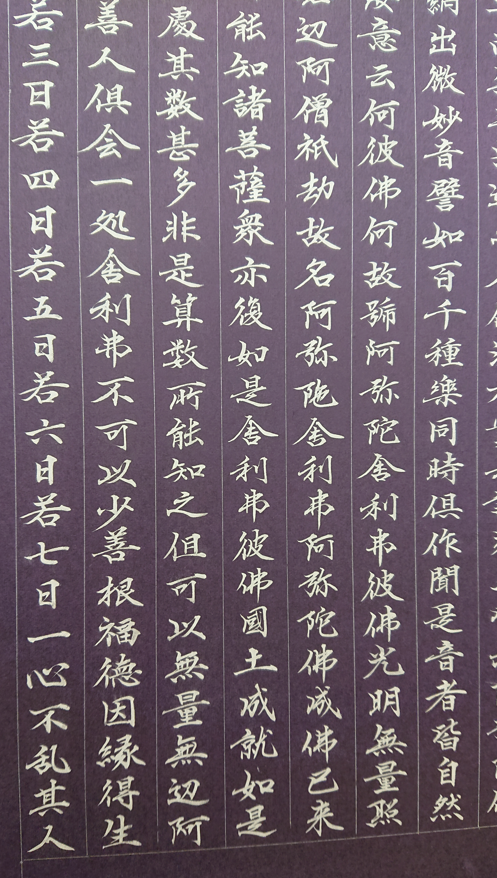 網出微妙音譬如百千種樂同時俱作聞是音者皆自然
意云何彼佛何故號阿弥陀舍利弗彼佛光明無量照
辺阿僧祇劫故名阿弥陀舍利弗阿弥陀佛成佛已来
能知諸菩薩衆亦復如是舍利弗彼佛國土成就如是
處其数甚多非是算数所能知之但可以無量無辺阿
善人俱会一処舍利弗不可以少善根福徳因縁得生
若三日若四日若五日若六日若七日一心不乱其人